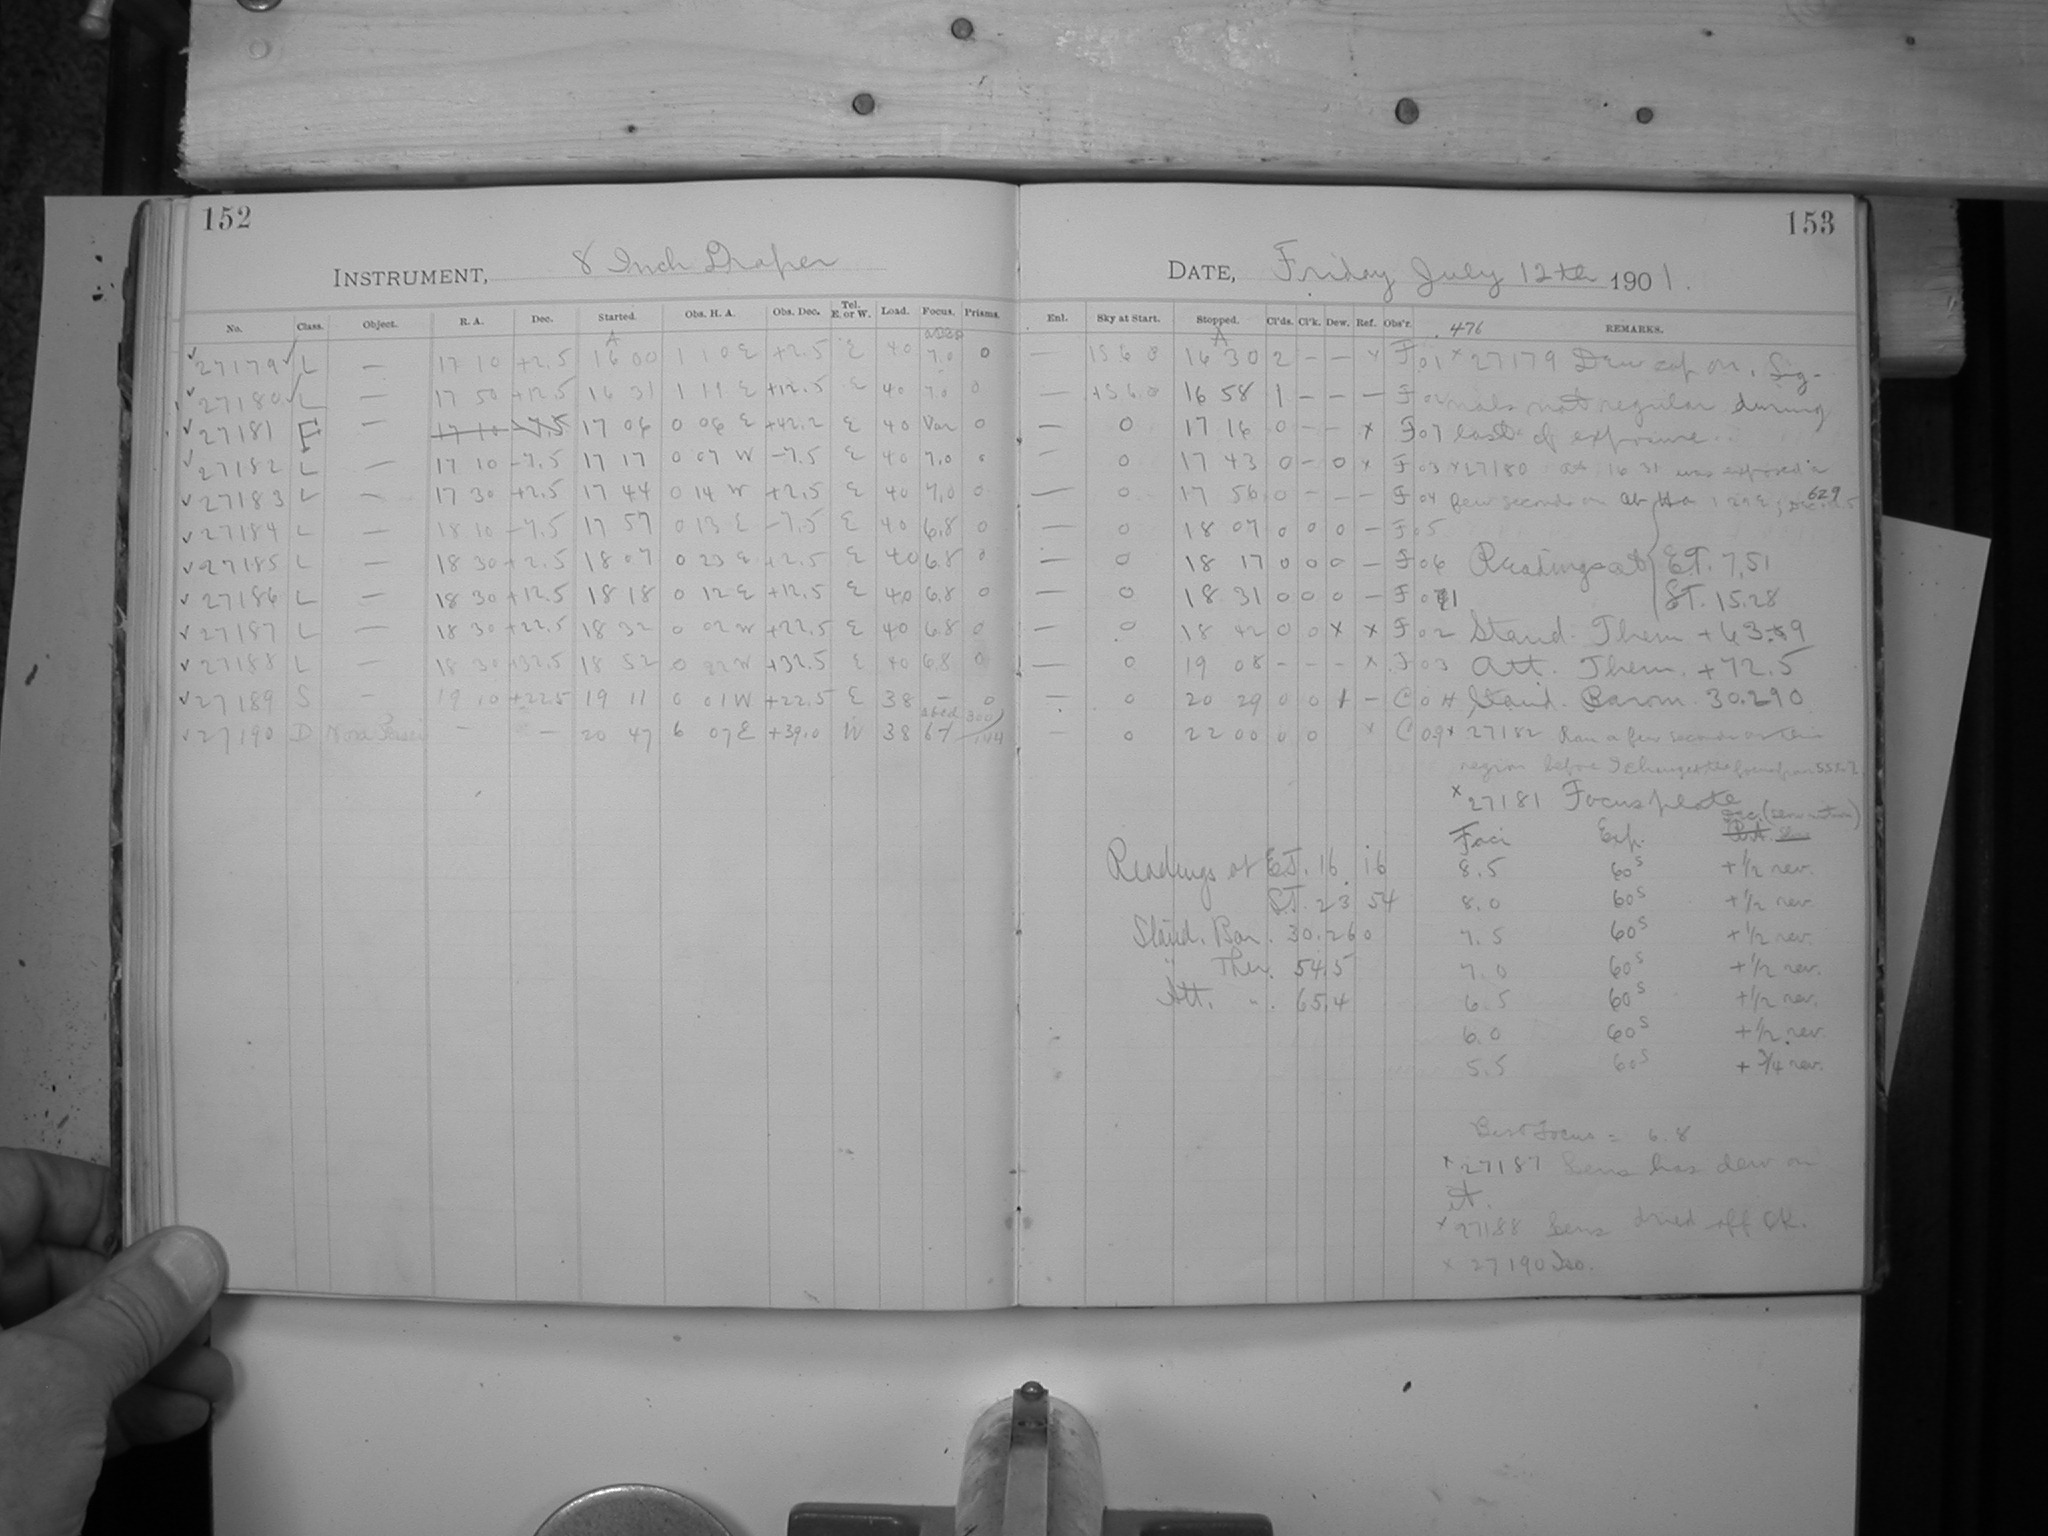 152
INSTRUMENT, 8 Inch Draper
No. Class. Object. R. A. Dec. Started. Obs. H. A. Obs. Dec. Tel. E. or W. Load. Focus. Prisms.
27179 L — 17 10 +2.5 16 00 1 10 E +2.5 E 40 7.0 0
27180 L — 17 50 +12.5 16 31 1 19 E +12.5 E 40 7.0 0
27181 F — 17 10 -7.5 17 06 0 06 E +42.2 E 40 Var 0
27182 L — 17 10 -7.5 17 17 0 07 W -7.5 E 40 7.0 0
27183 L — 17 30 +2.5 17 44 0 14 W +2.5 E 40 7.0 0
27184 L — 18 10 -7.5 17 57 0 13 E -7.5 E 40 6.8 0
27185 L — 18 30 +2.5 18 07 0 23 E +2.5 E 40 6.8 0
27186 L — 18 30 +12.5 18 18 0 12 E +12.5 E 40 6.8 0
27187 L — 18 30 +22.5 18 32 0 02 W +22.5 E 40 6.8 0
27188 L — 18 30 +32.5 18 52 0 22 W +32.5 E 40 6.8 0
27189 S — 19 10 +22.5 19 11 0 01 W +22.5 E 38 — 0
27190 D Nova Persei — — 20 47 6 07 E +39.0 W 38 67
153
DATE, Friday July 12th 1901.
Enl. Sky at Start. Stopped. Cl'ds. Cl'k. Dew. Ref. Obs'r. 476 REMARKS.
— 16 30 2 — — x F 01 x 27179 Dew cap on. Sig-
— 16 58 1 — — — F nals not regular during
— 0 17 16 0 — — x F 07 last of exposure.
— 0 17 43 0 - 0 x F 03 x 27180 at 16 31 was exposed a
— 0 17 56 0 - - - F 04 few seconds on 629
— 0 18 07 0 0 0 — F 05
— 0 18 17 0 0 0 — F 06 Readings at E.T. 7.51
— 0 18 31 0 0 0 — F S.T. 15.28
— 0 18 42 0 0 x x F 02 Stand. Them +63.9
— 0 19 08 - - - x F 03 Att. Them. +72.5
— 0 20 29 0 0 — C Stand. Barom. 30.290
— 0 22 00 0 0 x C 09 x 27182 Ran a few seconds on this
region before I changed the focus from
x 27181 Focus plate
Dec.
Foci Exp. R.A.
8.5 60s +1/2 rev.
8.0 60s +1/2 rev.
7.5 60s +1/2 rev.
7.0 60s +1/2 rev.
6.5 60s +1/2 rev.
6.0 60s +1/2 rev.
5.5 60s +3/4 rev.
Readings at E.T. 16 16
S.T. 23 54
Stand. Bar. 30.260
" Ther. 54.5
Att. " . 65.4
Best Focus = 6.8
x 27187 Lens has dew on
it.
x 27188 Lens dried off OK.
x 27190 Iso.